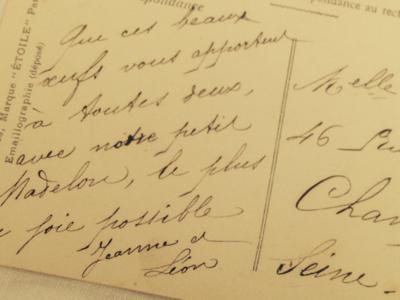 pondance
ondance au rect
Marque "ÉTOILE" Par
Emaillographie (déposé)
Que ces beaux
œufs vous apportent
à toutes deux,
avec notre petit
Madelon, le plus
joie possible
Jeanne et
Léon
Melle
46
Seine.